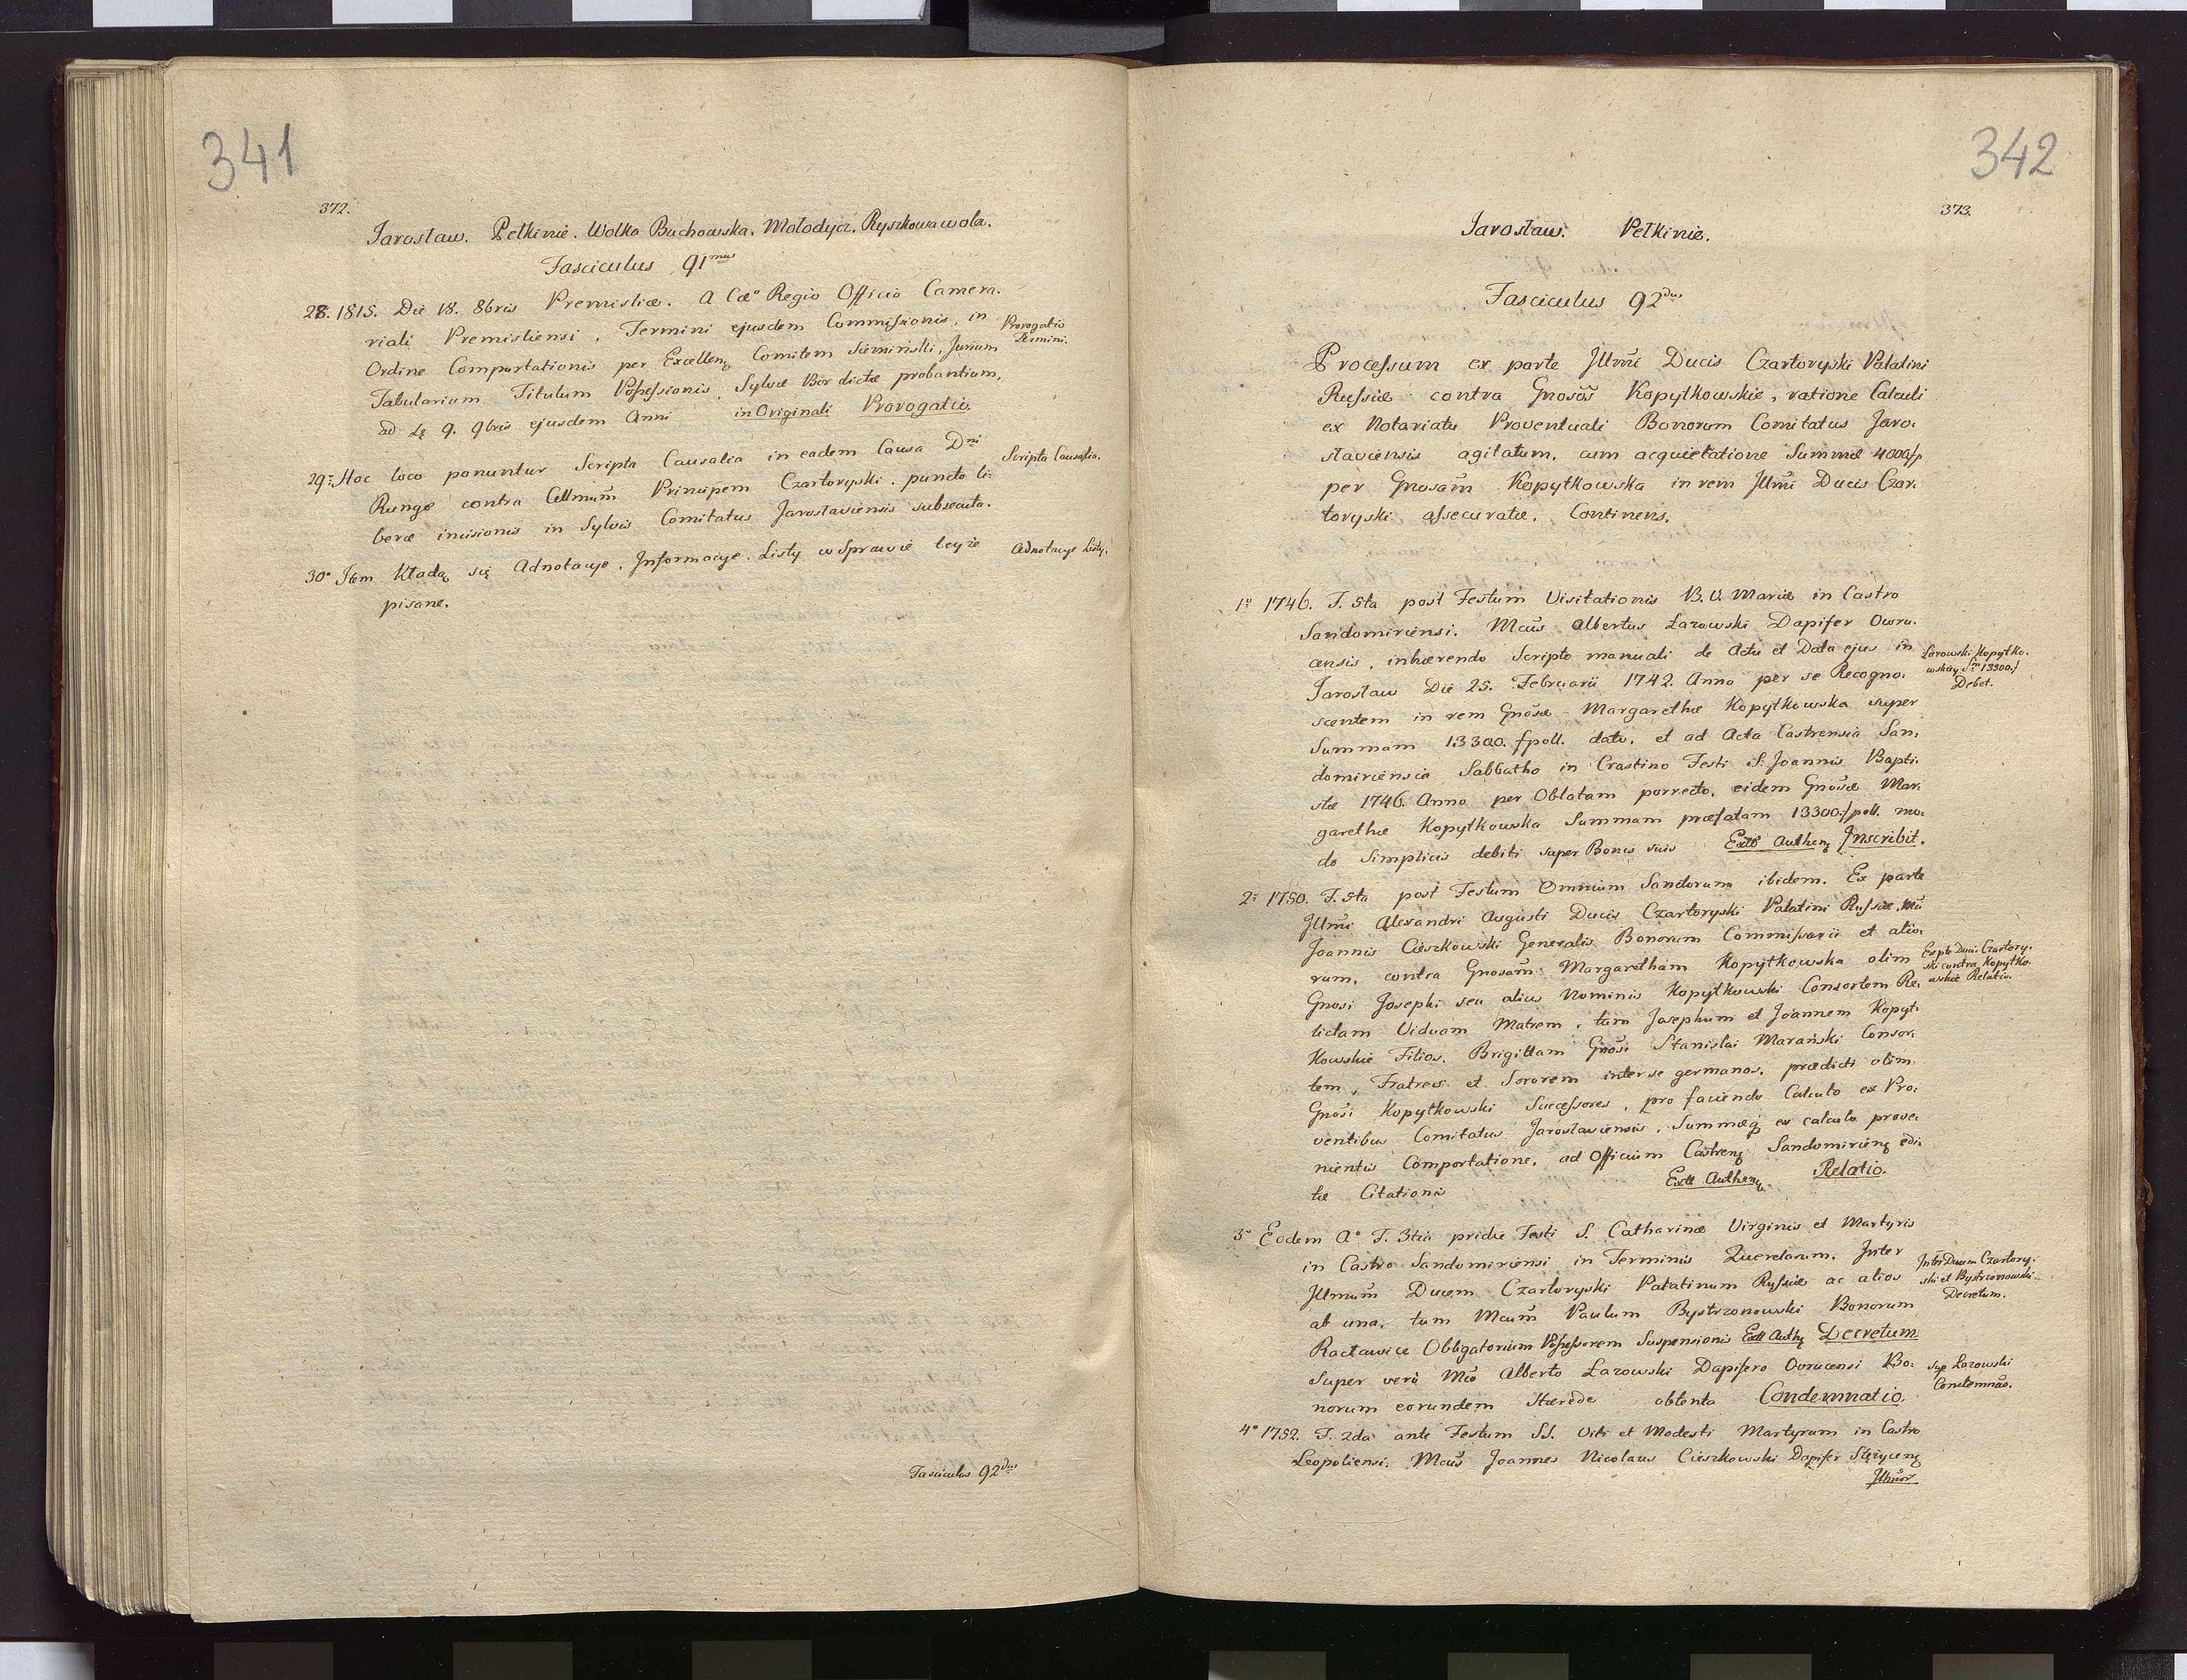 341
372.
Jarosław. Pełkinie. Wolka Buchowska. Mołodycz. Ryszkowawola.
Fasciculus 91mus
28. 1815. Die 18. 8bris Premisliæ. A Cæo Regio Officio Camera-
riali Premisliensi, Termini ejusdem Commissionis, in
Ordine Comportationis per Excellen Comitem Siemiński, Jurium
Tabularium Titulum Possessionis Sylvæ Bór dictæ probantium,
ad 9. 9bris ejusdem Anni in Originali Prorogatio.
Prorogatio
Termini.
29. Hoc loco ponuntur Scripta Causalia in eadem Causa Dni
Runge contra Cellmum Principem Czartoryski. puncto li-
beræ incisionis in Sylvis Comitatus Jaroslaviensis subsecuta.
Scripta Causalia.
30o Item Kładą się Adnotacye. Informacye. Listy w Sprawie teyże
pisane.
Adnotacye Listy.
Fasciculus 92dus
342
373.
Jarosław. Pełkinie.
Fasciculus 92dus
Processum ex parte Jllmi Ducis Czartoryski Palatini
Russiæ contra Gnosos Kopytkowskie, ratione Calculi
ex Notariatu Proventuali Bonorum Comitatus Jaro-
slaviensis agitatum, cum acquietatione Summæ 4000 fp
per Gnosam Kopytkowska in rem Jllmi Ducis Czar-
toryski assecuratæ. Continens.
1o 1746. F. 5ta post Festum Visitationis B. V. Mariæ in Castro
Sandomiriensi. Mcus Albertus Łazowski Dapifer Owru-
censis, inhærendo Scripto manuali de Actu et Data ejus in
Jarosław Die 25. Februarii 1742. Anno per se Recogno-
scentem in rem Gnosæ Margarethæ Kopytkowska super
Summam 13300. fpoll. dato, et ad Acta Castrensia San-
domiriensia Sabbatho in Crastino Festi S. Joannis Bapti-
stæ 1746. Anno per Oblatam porrecto, eidem Gnosæ Mar-
garethæ Kopytkowska Summam præfatam 13300. fpoll. mo-
do Simplicis debiti super Bonis suis Extt Authen Inscribit.
Łazowski Kopytko-
wskiey Sm 13300. f
Debet.
2o 1750. F. 5ta post Festum Omnium Sanctorum ibidem. Ex parte
Jllmi Alexandri Augusti Ducis Czartoryski Palatini Russiæ, Mci
Joannis Cieszkowski Generalis Bonorum Commissarii et alio-
rum, contra Gnosam Margaretham Kopytkowska olim
Gnosi Josephi seu alius Nominis Kopytkowski Consortem Re-
lictam Viduam Matrem, tum Josephum et Joannem Kopyt-
kowskie Filios, Brigittam Gnosi Stanislai Marański Consor-
tem, Fratres et Sororem inter se germanos, prædicti olim
Gnosi Kopytkowski Successores, pro faciendo Calculo ex Pro-
ventibus Comitatus Jaroslaviensis, Summæq ex calculo prove-
nientis Comportatione, ad Officium Castren Sandomirien edi-
tæ Citationis Extt Authen Relatio.
Ex pte Ducis Czartory-
ski contra Kopytko-
wskie Relatio.
3o Eodem Ao F. 3tia pridie Festi S. Catharinæ Virginis et Martyris
in Castro Sandomiriensi in Terminis Querelarum. Inter
Jllmum Ducem Czartoryski Palatinum Russiæ ac alios
ab una, tum Mcum Paulum Bystrzonowski Bonorum
Racławice Obligatorium Possessorem Suspensionis Extt Authen Decretum.
Super vero Mco Alberto Łazowski Dapifero Ovrucensi Bo-
norum eorundem Hærede obtenta Condemnatio.
Inter Ducem Czartory-
ski et Bystrzonowski
Decretum.
Sup Łazowski
Condemnao.
4o 1752. F. 2da ante Festum SS. Viti et Modesti Martyrum in Castro
Leopoliensi. Mcus Joannes Nicolaus Cieszkowski Dapifer Stężycen
Jllmor